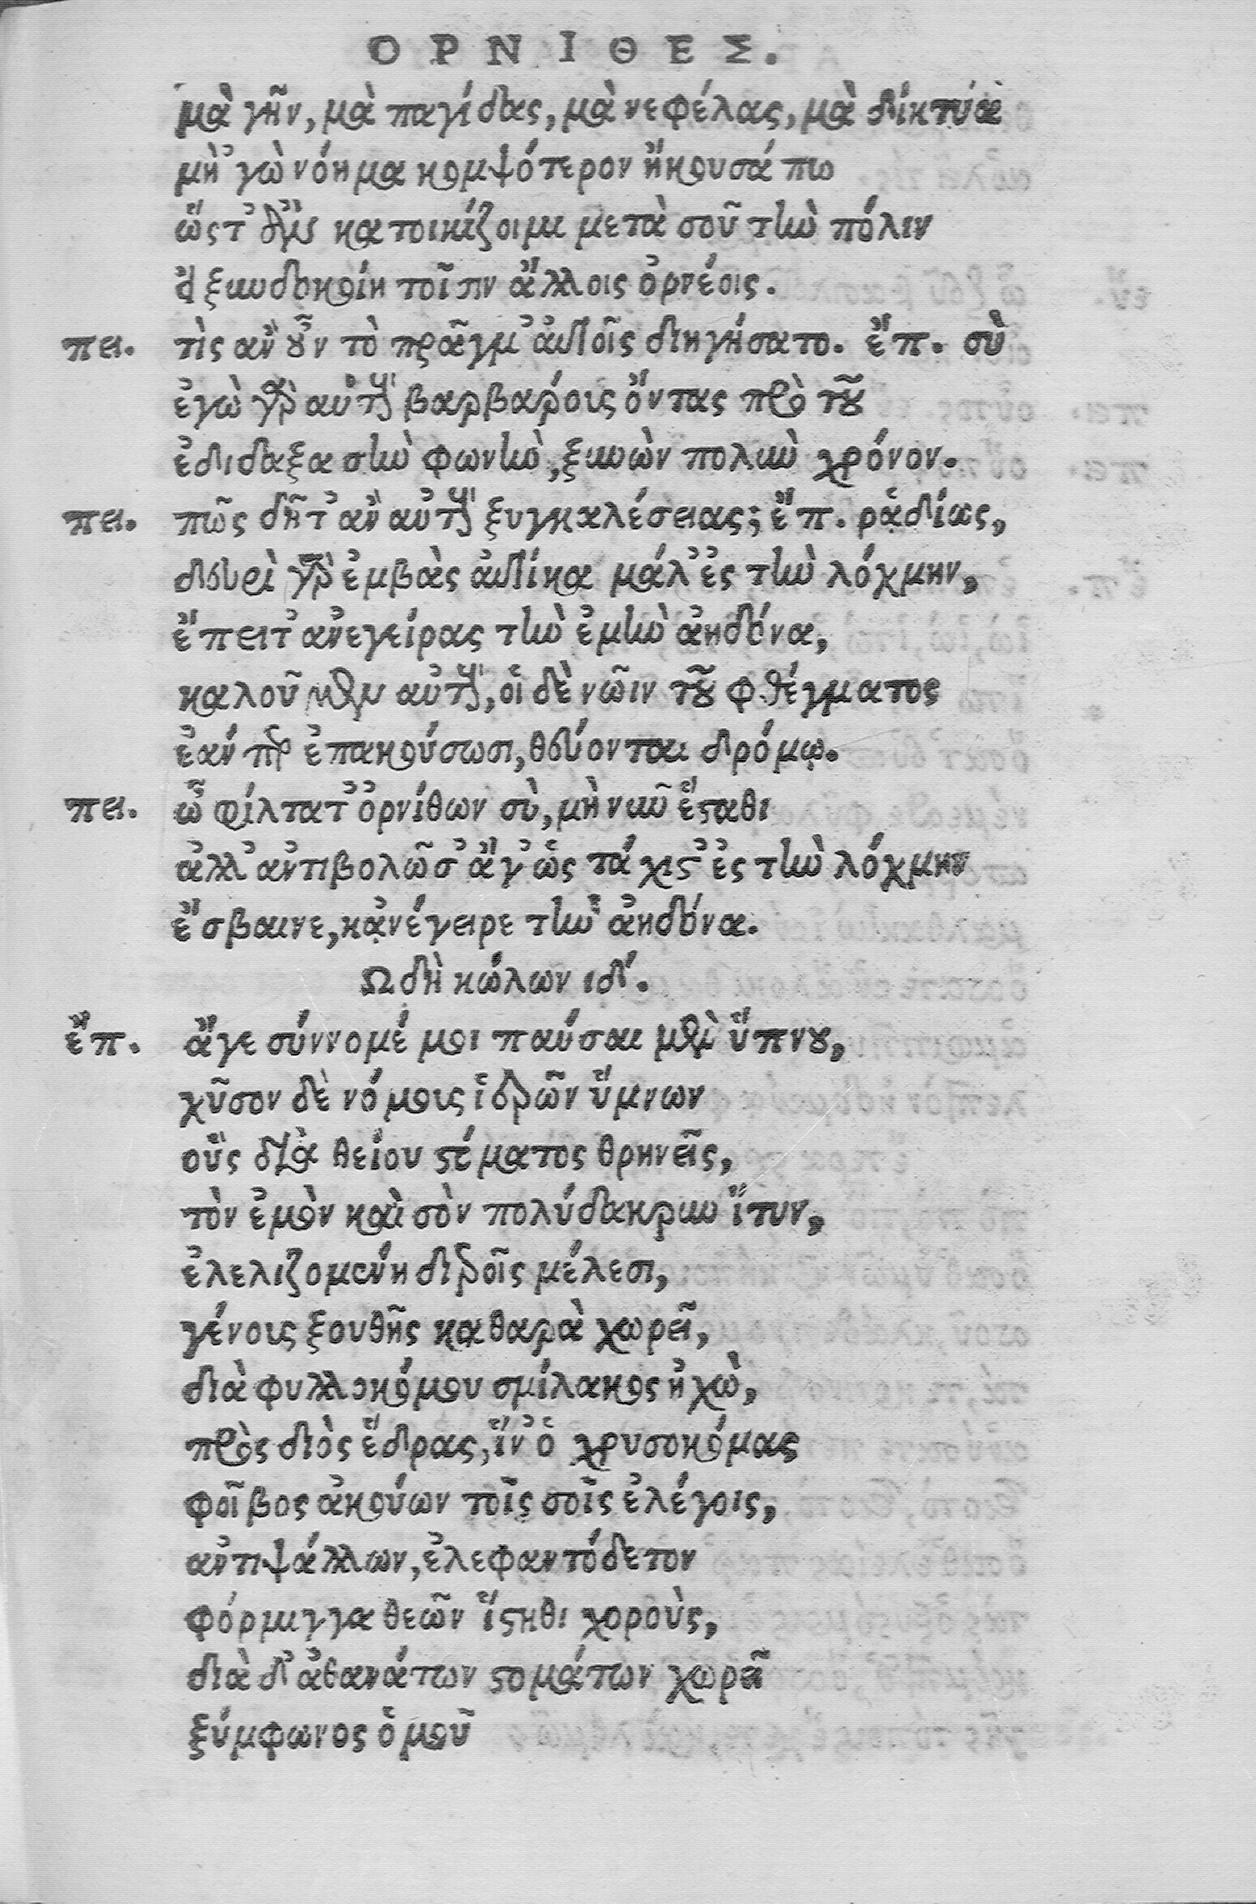 ΟΡΝΙΘΕΣ.
μὰ γῆν, μὰ παγίδας, μὰ νεφέλας, μὰ δίκτυα
μὴ ᾿γὼ νόημα κομψότερον ἤκουσά πω
ὥστ᾽ ἂν κατοικίζοιμι μετὰ σοῦ τὴν πόλιν
εἰ ξυνδοκοίη τοῖσιν ἄλλοις ὀρνέοις.
πει. τὶς ἂν οὖν τὸ πρᾶγμ᾽ αὐτοῖς διηγήσατο. ἔπ. σὺ
ἐγὼ γὰρ αὐτοὺς βαρβάροις ὄντας πρὸ τοῦ
ἐδίδαξα στὴν φωνὴν, ξυνὼν πολὺν χρόνον.
πει. πῶς δῆτ᾽ ἂν αὐτοὺς ξυγκαλέσειας; ἔπ. ῥᾳδίως,
δευρὶ γὰρ ἐμβὰς αὐτίκα μάλ᾽ ἐς τὴν λόχμην,
ἔπειτ᾽ ἀνεγείρας τὴν ἐμὴν ἀηδόνα,
καλοῦμεν αὐτοὺς, οἱ δὲ νῶιν τοῦ φθέγματος
ἐάν περ ἐπακούσωσι, θεύονται δρόμῳ.
πει. ὦ φίλτατ᾽ ὀρνίθων σὺ, μὴ νῦν ἕσταθι
ἀλλ᾽ ἀντιβολῶ σ᾽ ἄγ᾽ ὡς τάχιστ᾽ ἐς τὴν λόχμην
ἔσβαινε, κἀνέγειρε τὴν ἀηδόνα.
Ωδὴ κώλων ιδ´.
ἔπ. ἄγε σύννομέ μοι παύσαι μὲν ὕπνου,
χῦσον δὲ νόμοις ἱερῶν ὕμνων
οὓς διὰ θείου στόματος θρηνεῖς,
τὸν ἐμὸν καὶ σὸν πολύδακρυν ἴτυν,
ἐλελιζομένη διεροῖς μέλεσι,
γένοις ξουθῆς καθαρὰ χωρεῖ,
διὰ φυλλοκόμου σμίλακος ἠχὼ,
πρὸς διὸς ἕδρας, ἵν᾽ ὁ χρυσοκόμας
φοῖβος ἀκούων τοῖς σοῖς ἐλέγοις,
ἀντιψάλλων, ἐλεφαντόδετον
φόρμιγγα θεῶν ἵστηθι χορούς,
διὰ δ᾽ ἀθανάτων στομάτων χωρεῖ
ξύμφωνος ὁμοῦ